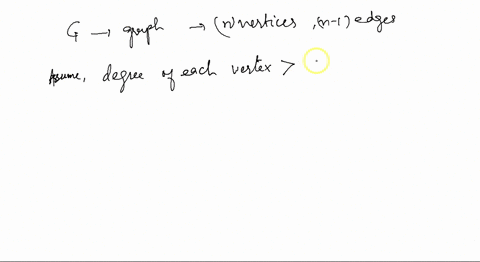 G → graph → (n) vertices, (n-1) edges
Assume, degree of each vertex >